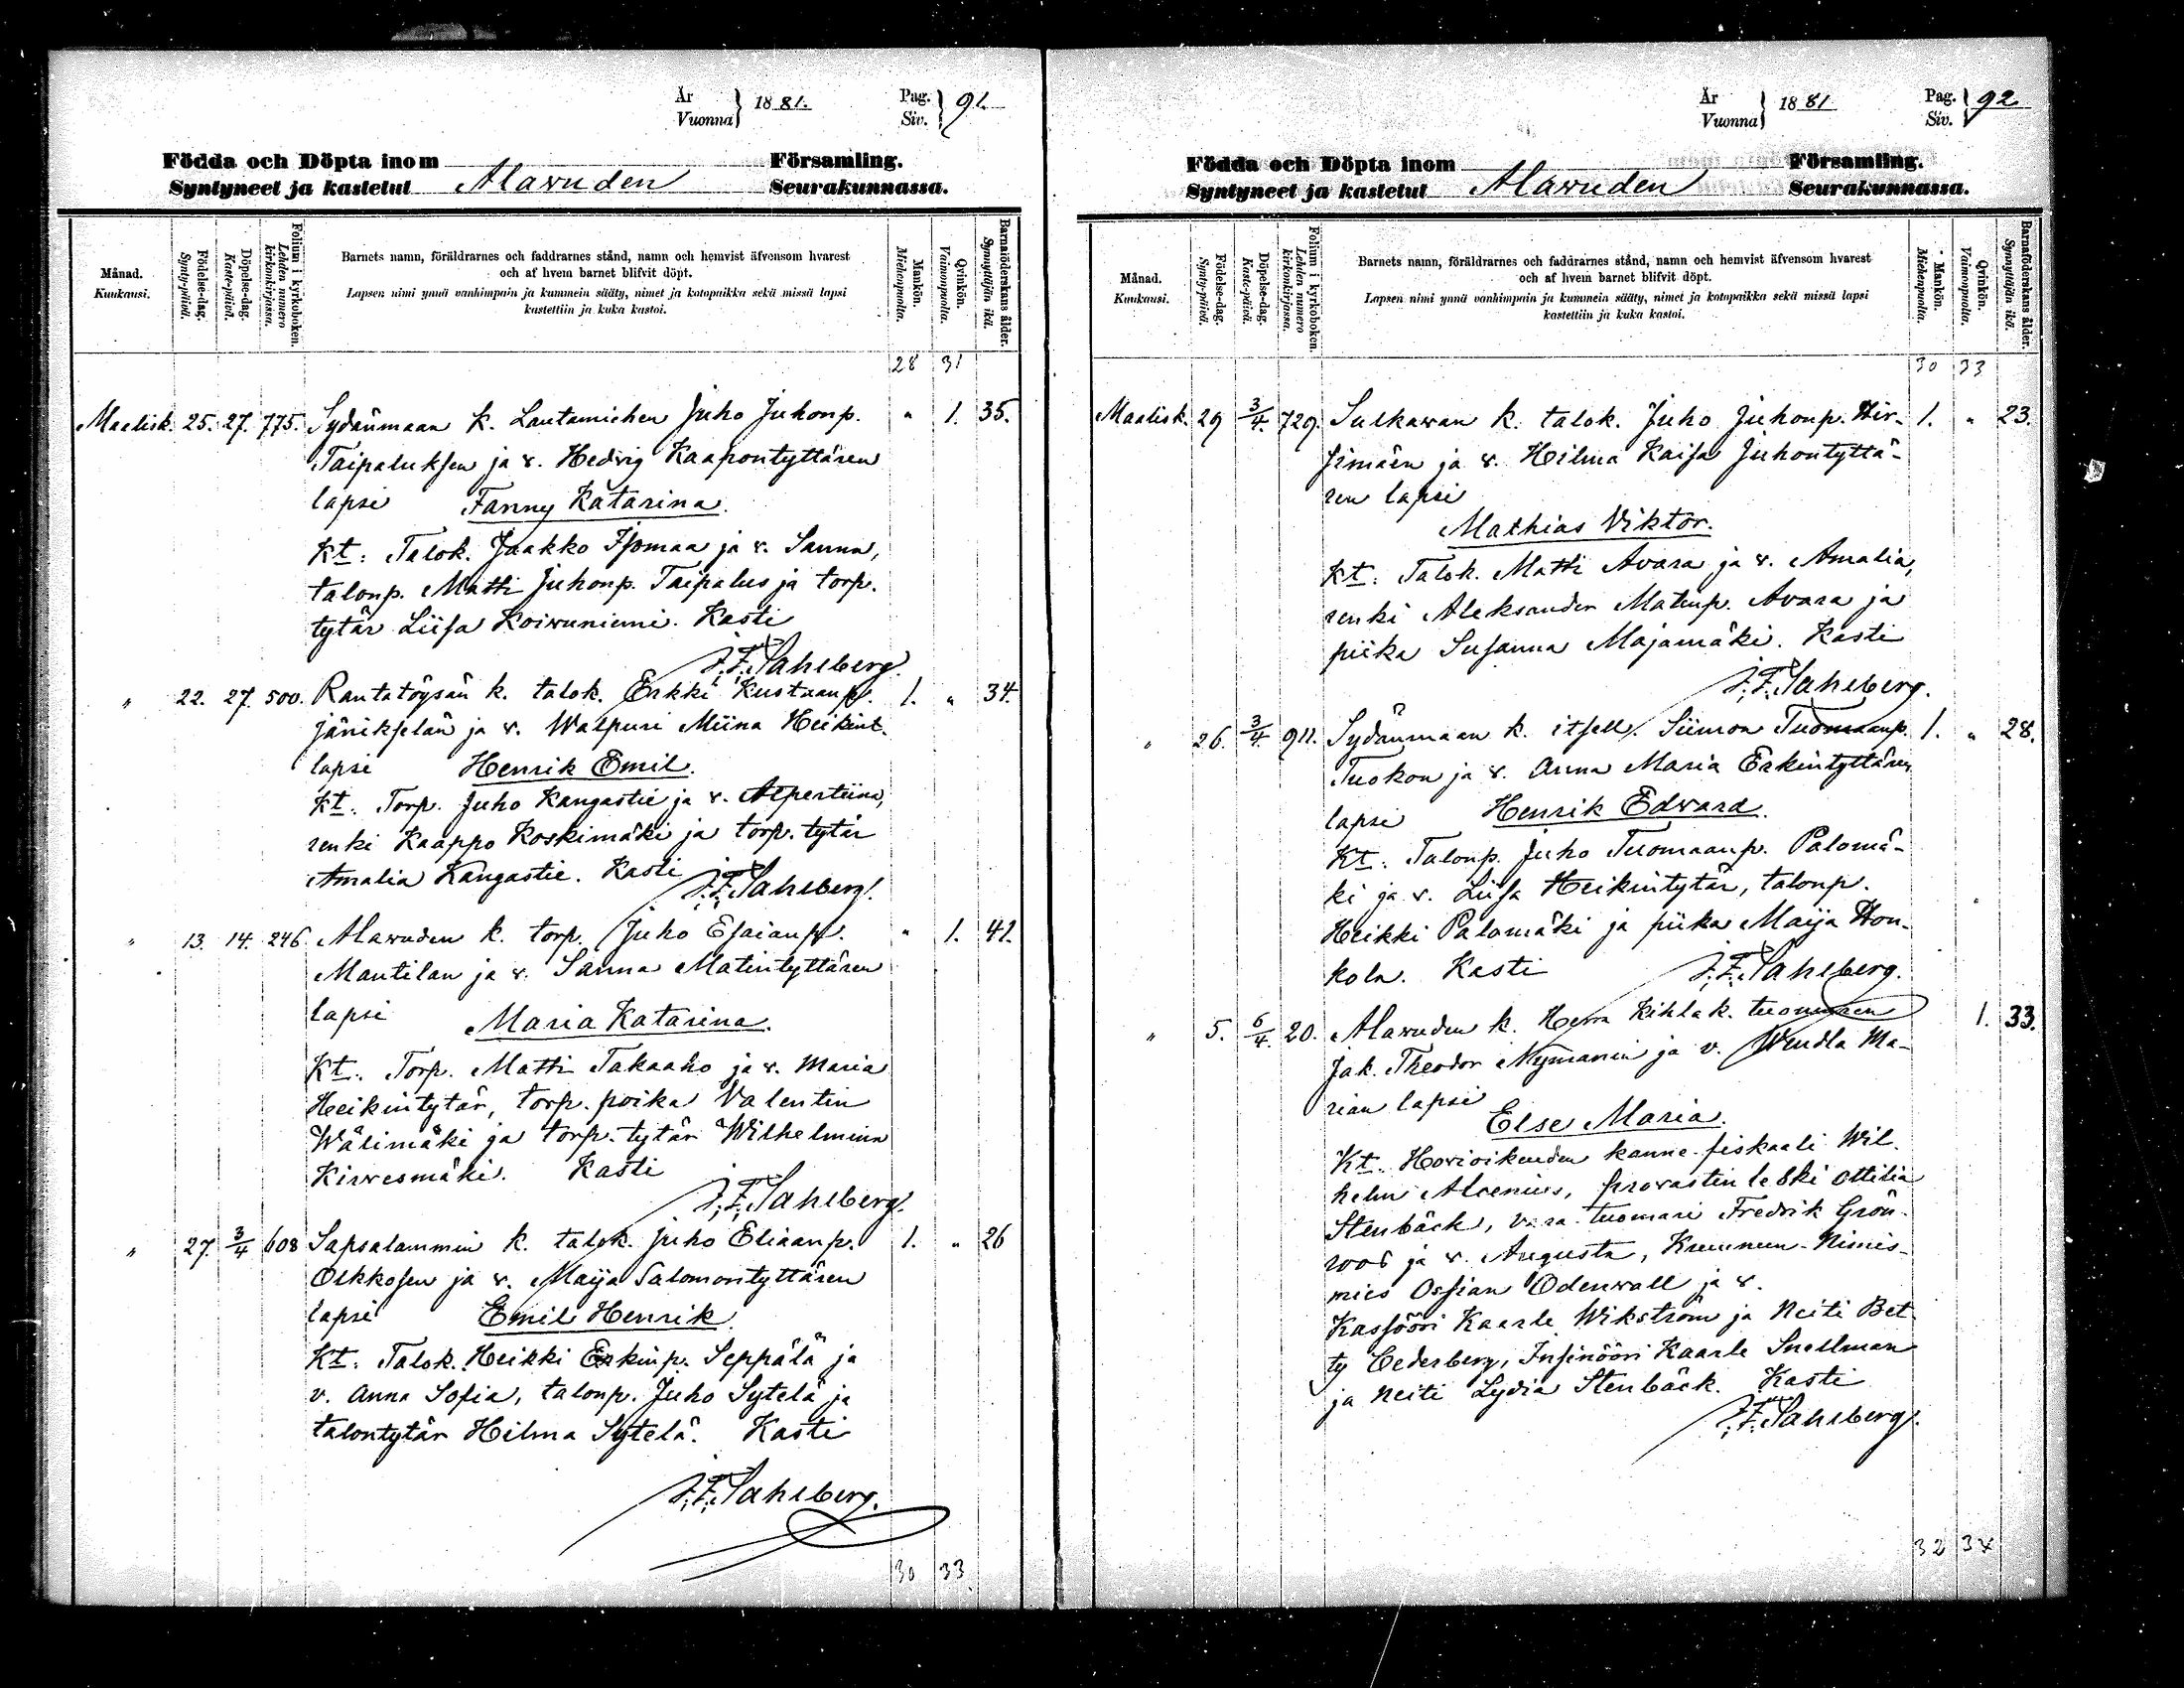 År
Vuonna } 1881.
Pag.
Siv. } 91.
Födda och Döpta inom Församling.
Syntyneet ja kastetut Alavuden Seurakunnassa.
Månad.
Kuukausi.
Födelse-dag.
Synty-päivä.
Döpelse-dag.
Kaste-päivä.
Folium i kyrkoboken.
Lehden numero kirkonkirjassa.
Barnets namn, föräldrarnes och faddrarnes stånd, namn och hemvist äfvensom hvarest
och af hvem barnet blifvit döpt.
Lapsen nimi ynnä vanhimpain ja kummein sääty, nimet ja kotopaikka sekä missä lapsi
kastettiin ja kuka kastoi.
Mankön.
Miehenpuolta.
Qvinkön.
Vaimonpuolta.
Barnaföderskans ålder.
Synnyttäjän ikä.
28 31
Maalisk. 25. 27. 775. Sydänmaan k. Lautamiehen Juho Juhonp. " 1. 35.
Taipaluksen ja v. Hedvig Kaapontyttären
lapsi Fanny Katarina.
Kt: Talok. Jaakko Isomaa ja v. Sanna,
talonp. Matti Juhonp. Taipalus ja torp.
tytär Liisa Koivuniemi. Kasti
J. F. Sahlberg.
" 22. 27. 500. Rantatöysän k. talok. Erkki Kustaanp. 1. " 34.
Jänikselän ja v. Walpuri Miina Heikint.
lapsi Henrik Emil.
Kt. Torp. Juho Kangastie ja v. Alpertiina,
renki Kaappo Koskimäki ja torp. tytär
Amalia Kangastie. Kasti J. F. Sahlberg.
" 13. 14. 246 Alavuden k. torp. Juho Esaianp. " 1. 41.
Mantilan ja v. Sanna Matintyttären
lapsi Maria Katarina.
Kt. Torp. Matti Takaaho ja v. Maria
Heikintytär, torp. poika Valentin
Wälimäki ja torp. tytär Wilhelmina
Kirvesmäki. Kasti
J. F. Sahlberg.
" 27. 3/4 608 Sapsalammin k. talok. Juho Eliaanp. 1. " 26
Olkkosen ja v. Maija Salomontyttären
lapsi Emil Henrik
Kt: Talok. Heikki Erkinp. Seppälä ja
v. Anna Sofia, talonp. Juho Sytelä ja
talontytär Hilma Sytelä. Kasti
J. F. Sahlberg.
30 33
År
Vuonna } 1881
Pag.
Siv. } 92
Födda och Döpta inom Församling.
Syntyneet ja kastetut Alavuden Seurakunnassa.
Månad.
Kuukausi.
Födelse-dag.
Synty-päivä.
Döpelse-dag.
Kaste-päivä.
Folium i kyrkoboken.
Lehden numero kirkonkirjassa.
Barnets namn, föräldrarnes och faddrarnes stånd, namn och hemvist äfvensom hvarest
och af hvem barnet blifvit döpt.
Lapsen nimi ynnä vanhimpain ja kummein sääty, nimet ja kotopaikka sekä missä lapsi
kastettiin ja kuka kastoi.
Mankön.
Miehenpuolta.
Qvinkön.
Vaimonpuolta.
Barnaföderskans ålder.
Synnyttäjän ikä.
30 33
Maalisk. 29 3/4. 729. Sulkavan k. talok. Juho Juhonp. Hir- 1. " 23.
simäen ja v. Hilma Kaisa Juhontyttä-
ren lapsi
Mathias Viktor.
Kt: Talok. Matti Avara ja v. Amalia,
renki Aleksander Matinp. Avara ja
piika Susanna Majamäki. Kasti
J. F. Sahlberg.
" 26. 3/4. 911. Sydänmaan k. itsell. Siimon Tuomaanp. 1. " 28.
Tuokon ja v. Anna Maria Erkintyttären
lapsi Henrik Edvard.
Kt: Talonp. Juho Tuomaanp. Palomä-
ki ja v. Liisa Heikintytär, talonp.
Heikki Palomäki ja piika Maija Hon-
kola. Kasti J. F. Sahlberg.
" 5. 6/4. 20. Alavuden k. Herra Kihlak. tuomaren 1. 33.
Jak. Theodor Nymanin ja v. Wendla Ma-
rian lapsi
Else Maria.
Kt. Hovioikeuden kanne-fiskaali Wil-
helm Alcenius, provastin leski Ottilia
Stenbäck, vara-tuomari Fredrik Grön-
roos ja v. Augusta, Kruunun-Nimis-
mies Ossian Odenvall ja v.
Kassööri Kaarle Wikström ja Neiti Bet-
ty Cederberg, Insinööri Kaarle Snellman
ja Neiti Lydia Stenbäck. Kasti
J. F. Sahlberg.
32 34